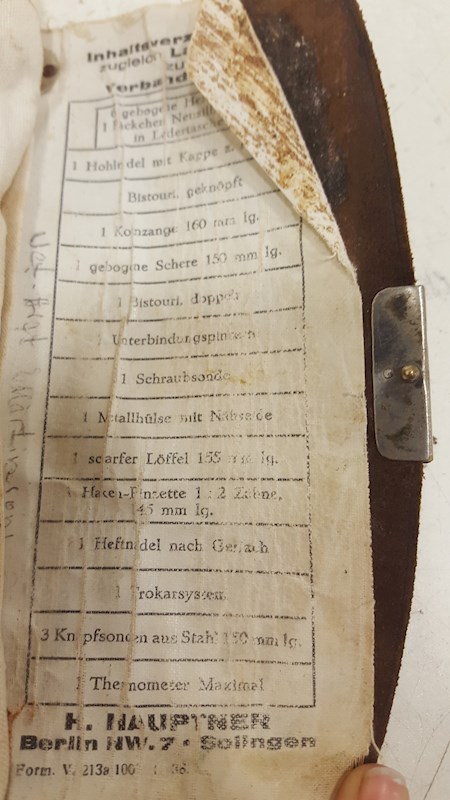 Inhaltsverz
zugleich La
zu
Verband
6 gebogene He
1 eckchen Neusil
in Ledertasche
1 Hohlnadel mit Kappe
Bistouri, geknöpft
1 Kornzange 160 mm lg.
1 gebogene Schere 150 mm lg.
1 Bistouri, doppelt
1 Unterbindungspinzette
1 Schraubsonde
1 Metallhülse mit Nähseide
1 scarfer Löffel 155 mm lg.
1 Haken-Pinzette 1:2 Zähne,
145 mm lg.
1 Heftnadel nach Gerlach
1 Trokarsystem
3 Knopfsonden aus Stahl 150 mm lg.
1 Thermometer Maximal
H. HAUPTNER
Berlin NW.7 · Solingen
Form. V. 213a 100 36.